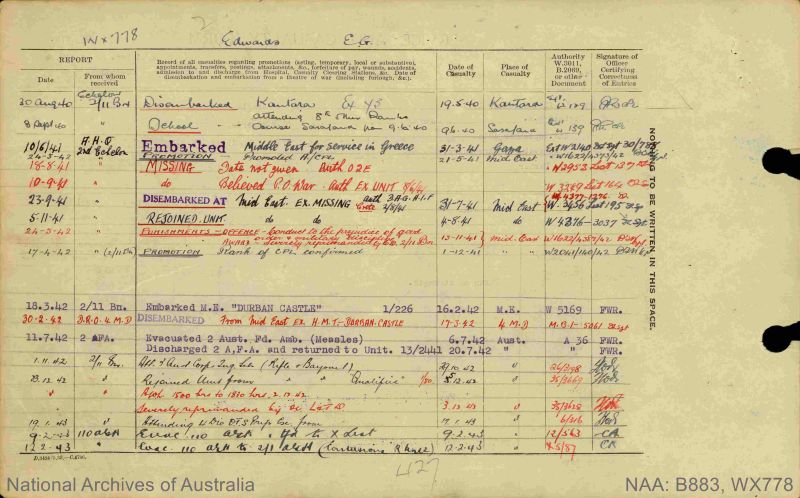 WX778
Edwards E.G.
REPORT
Record of all casualties regarding promotions (acting, temporary, local or substantive), appointments, transfers, postings, attachments, &c., forfeiture of pay, wounds, accidents, admission to and discharge from Hospital, Casualty Clearing Stations, &c. Date of disembarkation and embarkation from a theatre of war (including furlough, &c.)
Date of Casualty
Place of Casualty
Authority W.3011, B.2069, or other Document
Signature of Officer Certifying Correctness of Entries
Date
From whom received
30 Aug 40 Echelon 2/11 Bn Disembarked Kantara 19.5.40 Kantara
8 Sept 40 " School 9.6.40 Sarafand
10/6/41 A.H.Q 2nd Echelon Embarked Middle East for Service in Greece 31-3-41 Gaza
24-3-42 PROMOTION Promoted A/CPL 21-5-41 Mid East
18-8-41 " MISSING Date not given Auth 02E
10-9-41 " do Believed P.O. War - Auth EX UNIT
23-9-41 " DISEMBARKED AT Mid East. Ex. MISSING 31-7-41 Mid East
5-11-41 " REJOINED UNIT do do 4-8-41 do W4876-3037
24-3-42 PUNISHMENTS - OFFENCE - Conduct to the prejudice of good order & military discipline
AWARD - Severely reprimanded by C.O. 2/11 Bn 13-11-41 Mid. East
17-4-42 " (2/11 Bn) PROMOTION Rank of CPL confirmed 1-12-41 " "
18.3.42 2/11 Bn. Embarked M.E. "DURBAN CASTLE" 1/226 16.2.42 M.E. W 5169 FWR.
30-2-42 D.R.O. 4 M.D DISEMBARKED From Mid East Ex. H.M.T. DURBAN CASTLE 17-3-42 4 M.D
11.7.42 2 AFA. Evacuated 2 Aust. Fd. Amb. (Measles) 6.7.42 Aust. A 36 FWR.
Discharged 2 A.F.A. and returned to Unit. 13/2441 20.7.42 " " FWR.
1.11.42 2/11 Bn. Att. 1 Aust Corps Trg Sch (Rifle & Bayonet)
23.12.42 " Rejoined Unit from " " Qualified 35/3669
" " AWOL 1500 hrs to 1830 hrs. 2.12.42
Severely reprimanded by 3.12.42 " 35/3628
19.1.43 " Attending from 17.1.43 " 6/316
9.2.43 110 AGH Evac. 110 AGH to X List 9.2.43 " 12/563 CR
12.2.43 " Evac. 110 AGH to 2/1 AGH (Contusions R Knee) 12.2.43 " CR
D.5434/3.39.—C.4790.
427
NOTHING TO BE WRITTEN IN THIS SPACE.
National Archives of Australia
NAA: B883, WX778